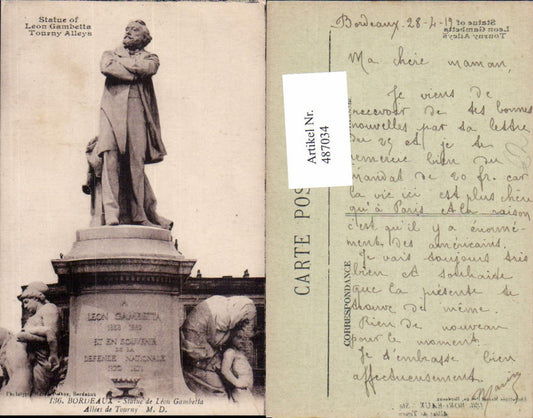 Statue of
Leon Gambetta
Tourny Alleys
A
LEON GAMBETTA
1838 1882
ET EN SOUVENIR
DE LA
DEFENSE NATIONALE
1870 1871
136. BORDEAUX - Statue de Léon Gambetta
Allées de Tourny M. D.
Bordeaux 28-4-19
Ma chère maman,
Je viens de
recevoir de tes bonnes
nouvelles par ta lettre
du 25 et je te
remercie bien du
mandat de 20 fr. car
la vie ici est plus chère
qu'à Paris et la raison
c'est qu'il y a énormé-
ment des américains.
Je vais toujours très
bien et souhaite
que la présente te
trouve de même.
Rien de nouveau
pour le moment.
Je t'embrasse bien
affectueusement.
CARTE POS
CORRESPONDANCE
Artikel Nr.
487034